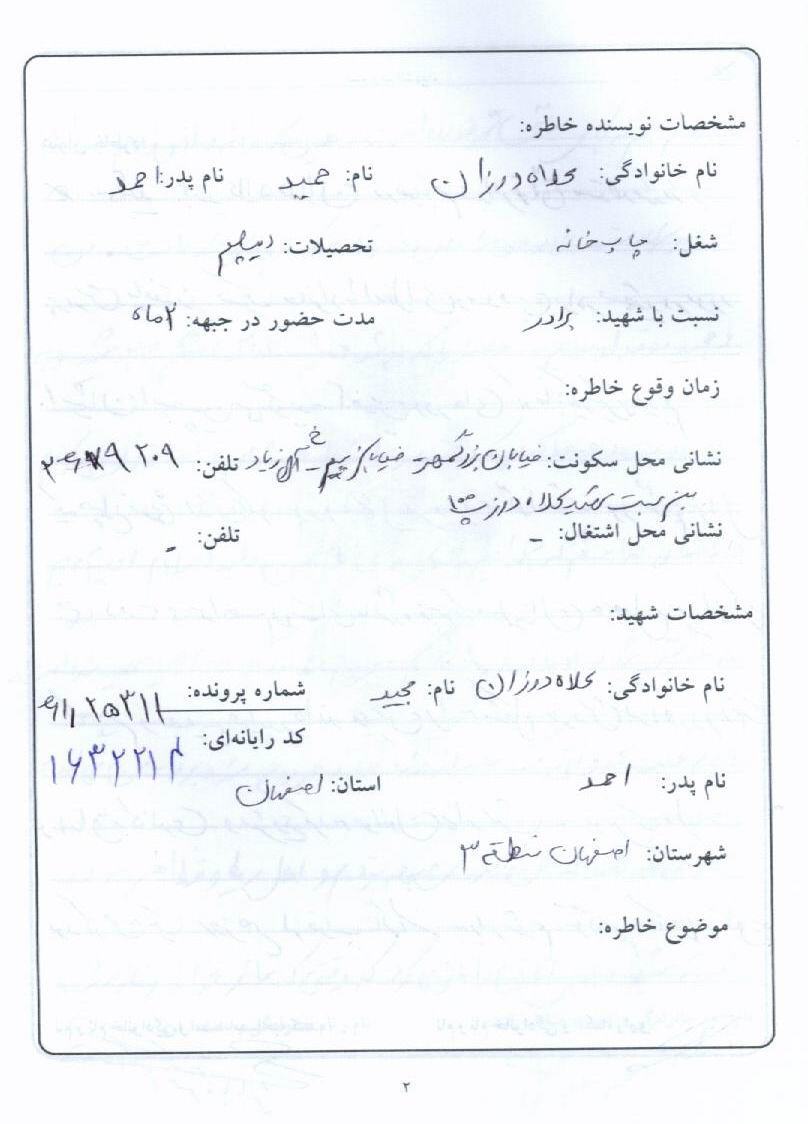 مشخصات نویسنده خاطره:
نام خانوادگی: کلاه دوزان نام: حمید نام پدر: احمد
شغل: چاپ خانه تحصیلات: دیپلم
نسبت با شهید: برادر مدت حضور در جبهه: ۲ ماه
زمان وقوع خاطره:
نشانی محل سکونت: خیابان بزرگمهر - خیابان تلفن:
بن بست شهید کلاه دوز
نشانی محل اشتغال: - تلفن: -
مشخصات شهید:
نام خانوادگی: کلاه دوزان نام: مجید شماره پرونده:
کد رایانه‌ای:
نام پدر: احمد استان: اصفهان
شهرستان: اصفهان منطقه ۳
موضوع خاطره:
۲